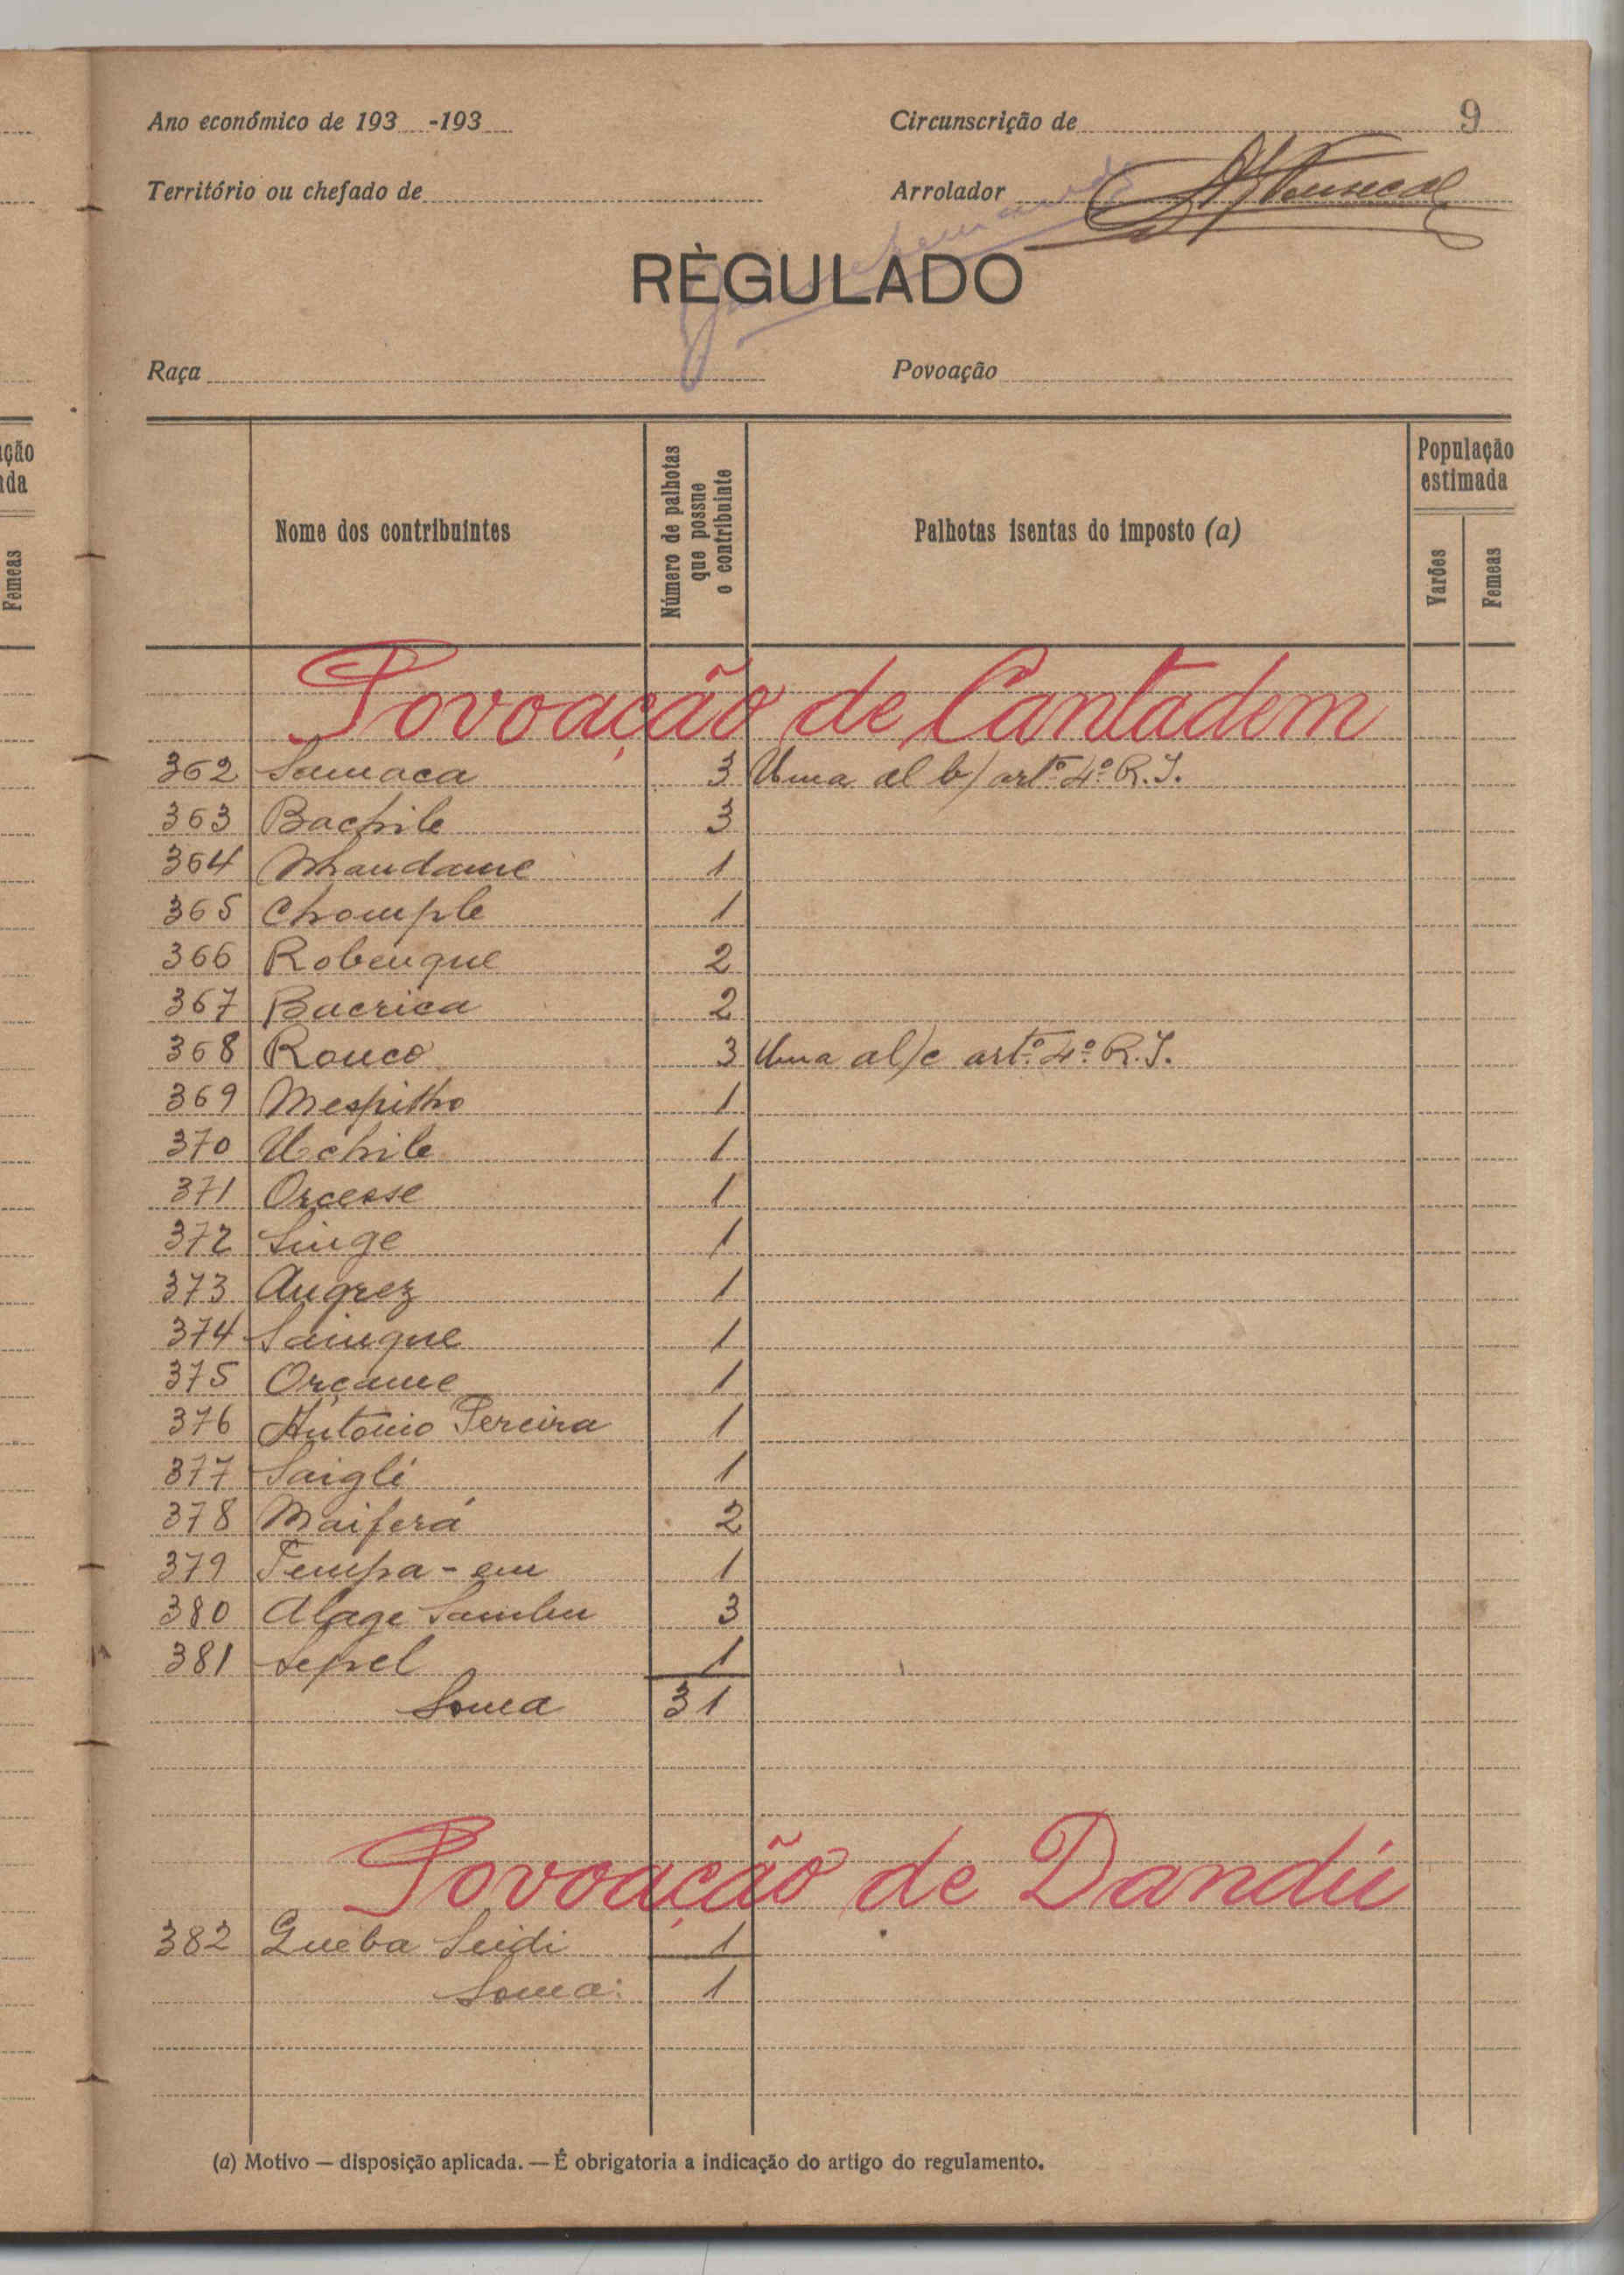 Ano económico de 193 -193
Circunscrição de
9
Território ou chefado de
Arrolador
RÈGULADO
Raça
Povoação
ução
ada
Femeas
Nome dos contribuintes
Número de palhotas
que possue
o contribuinte
Palhotas isentas do imposto (a)
População
estimada
Varões
Femeas
Povoação de Cantadem
362 Samaca 3 Uma al b) artº 4º R.I.
363 Bachile 3
364 Nhandame 1
365 Chomple 1
366 Robenque 2
367 Bacrica 2
368 Ronco 3 Uma al)c artº 4º R.I.
369 Mespitho 1
370 Uchile 1
371 Orcesse 1
372 Singe 1
373 Angrez 1
374 Sainque 1
375 Orçame 1
376 António Pereira 1
377 Saigli 1
378 Maiferá 2
379 Tempa-em 1
380 Alage Sambu 3
381 Sepel 1
Soma 31
Povoação de Dandú
382 Queba Seidi 1
Soma: 1
(a) Motivo — disposição aplicada. — É obrigatoria a indicação do artigo do regulamento.